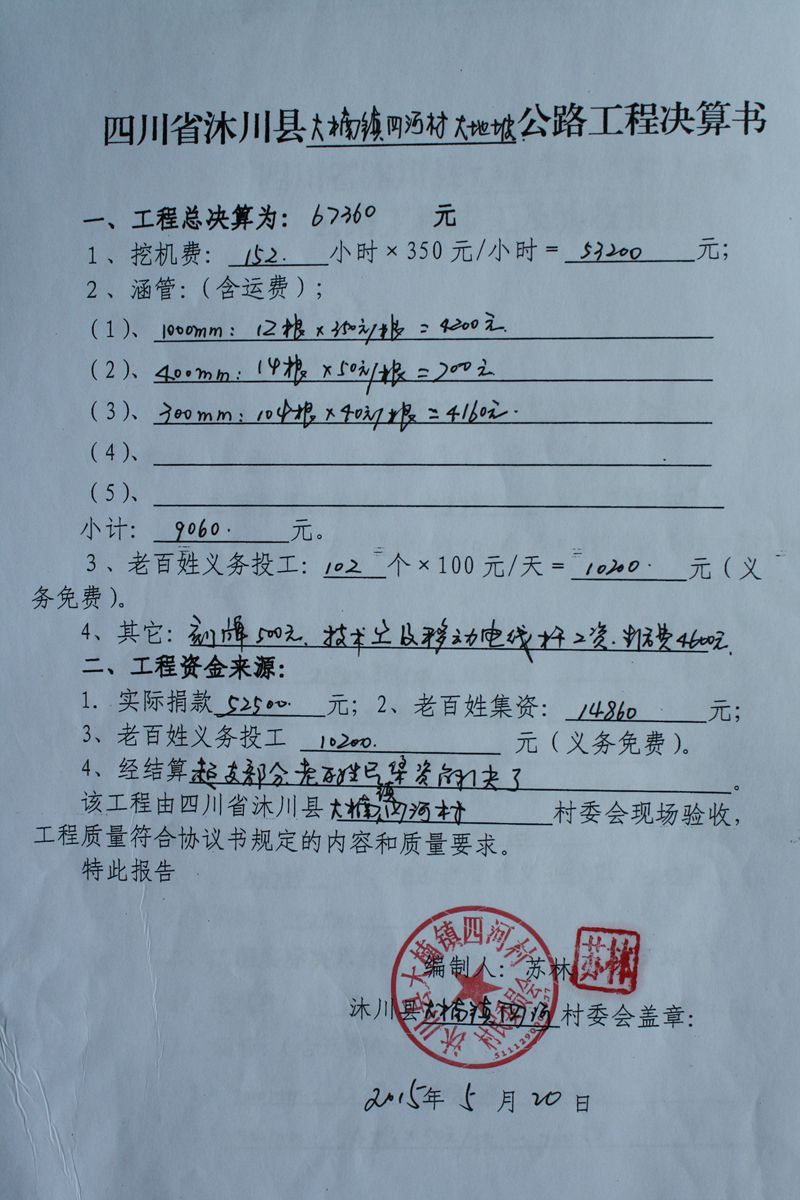 四川省沐川县大楠镇四河村大地坡公路工程决算书
一、工程总决算为：67360 元
1、挖机费：152.小时×350元/小时=53200元；
2、涵管：（含运费）；
（1）、1000mm：12根×350元/根=4200元.
（2）、400mm：14根×50元/根=700元
（3）、300mm：104根×40元/根=4160元.
（4）、
（5）、
小计：9060.元。
3、老百姓义务投工：102个×100元/天=10200.元（义
务免费）。
4、其它：刻牌500元、技术员及移动电线杆工资.4600元.
二、工程资金来源：
1.实际捐款52500.元；2、老百姓集资：14860元；
3、老百姓义务投工 10200. 元（义务免费）。
4、经结算超支部分老百姓已集资解决了。
该工程由四川省沐川县大楠镇四河村村委会现场验收，
工程质量符合协议书规定的内容和质量要求。
特此报告
编制人：苏林
苏林
沐川县大楠镇四河村委会盖章：
沐川县大楠镇四河村
村民委员会
2015年5月20日